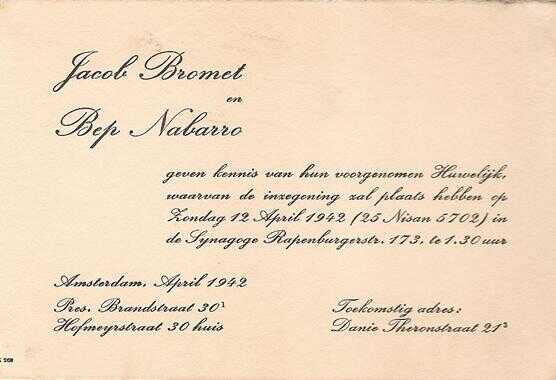 Jacob Bromet
en
Bep Nabarro
geven kennis van hun voorgenomen Huwelijk,
waarvan de inzegening zal plaats hebben op
Zondag 12 April 1942 (25 Nisan 5702) in
de Synagoge Rapenburgerstr. 173, te 1.30 uur
Amsterdam, April 1942
Pres. Brandstraat 30¹
Hofmeyrstraat 30 huis
Toekomstig adres:
Danie Theronstraat 21³